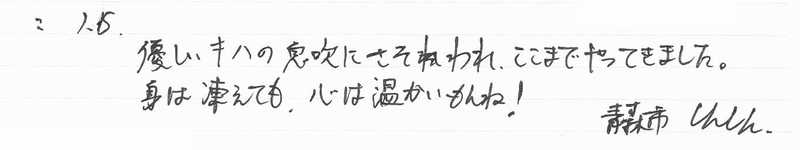 : 1.5.
優しいキハの息吹にさそわれ、ここまでやってきました。
身は凍えても、心は温かいもんね!
青森市 しんしん.